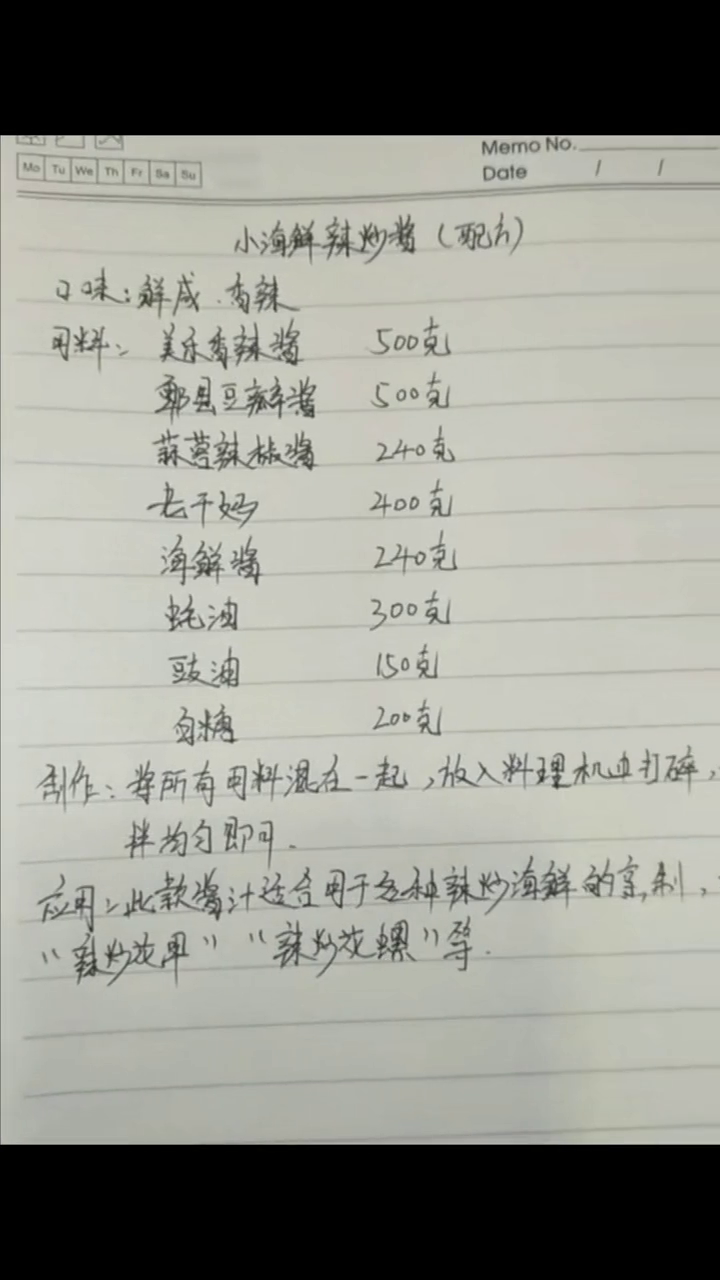 Memo No.
Mo Tu We Th Fr Sa Su
Date / /
小海鲜辣炒酱(配方)
口味:鲜咸、香辣
用料: 美乐香辣酱 500克
郫县豆瓣酱 500克
蒜蓉辣椒酱 240克
老干妈 400克
海鲜酱 240克
蚝油 300克
豉油 150克
白糖 200克
制作:将所有用料混在一起,放入料理机中打碎,
拌均匀即可.
应用:此款酱汁适合用于各种辣炒海鲜的烹制,
“辣炒花甲” “辣炒花螺”等.